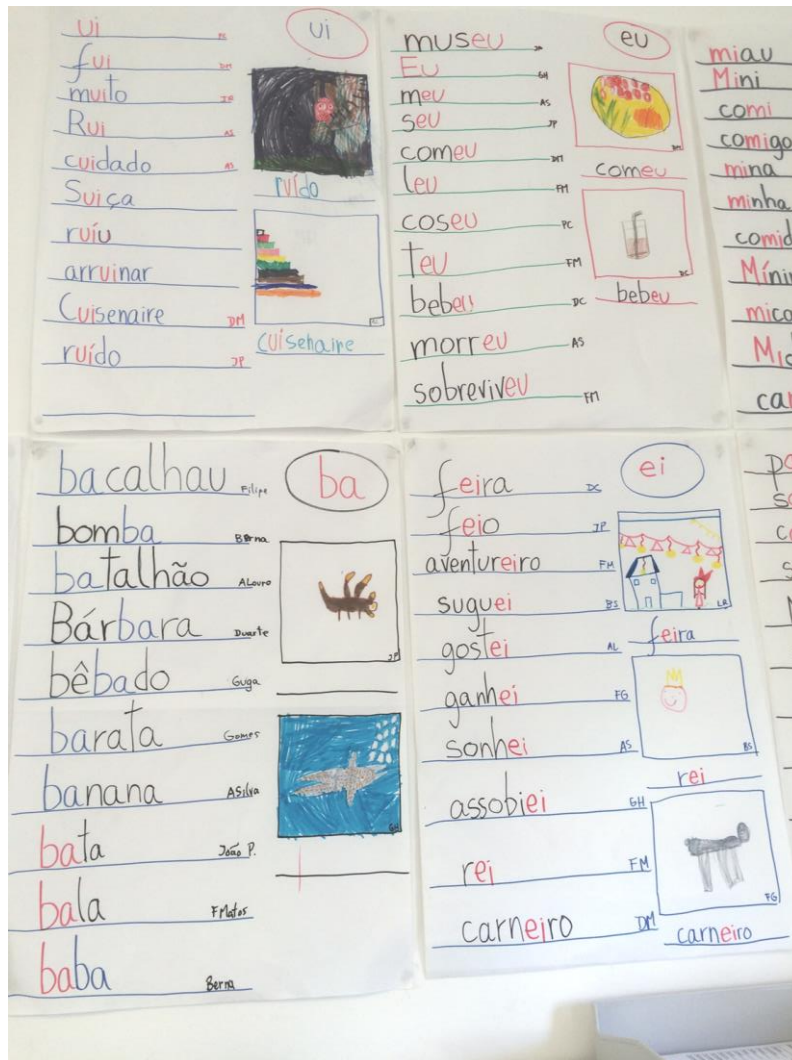 ui
ui
fui DM
muito
Rui AS
cuidado AS
Suiça
ruíu
arruinar
Cuisenaire DM
ruído JP
ruído
cuisenaire
eu
museu
Eu GH
meu AS
seu JP
comeu DM
leu FM
coseu PC
teu FM
bebeu DC
morreu AS
sobreviveu FM
comeu
DC
bebeu
miau
Mini
comi
comigo
mina
minha
ba
bacalhau Filipe
bomba Berna
batalhão ALouro
Bárbara Duarte
bêbado Guga
barata Gomes
banana ASilva
bata João P.
bala FMatos
baba Berna
JP
GH
ei
feira DC
feio JP
aventureiro FM
suguei BS
gostei AL
ganhei FG
sonhei AS
assobiei GH
rei FM
carneiro DM
LR
feira
BS
rei
FG
carneiro